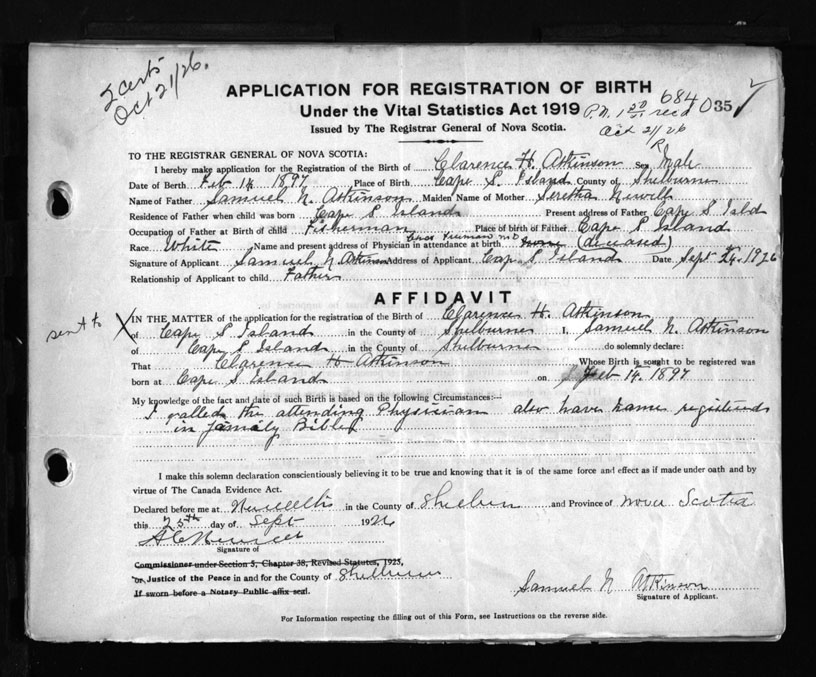 2 certs
Oct 21/26.
APPLICATION FOR REGISTRATION OF BIRTH
Under the Vital Statistics Act 1919
Issued by The Registrar General of Nova Scotia.
684
035
P.N. 1 50 rec'd
Oct 21/26
TO THE REGISTRAR GENERAL OF NOVA SCOTIA:
I hereby make application for the Registration of the Birth of Clarence H. Atkinson Sex Male
Date of Birth Feb 14 1897 Place of Birth Cape S. Island County of Shelburne
Name of Father Samuel N. Atkinson Maiden Name of Mother Seretha Newell
Residence of Father when child was born Cape S Island Present address of Father Cape S Isld
Occupation of Father at Birth of child Fisherman Place of birth of Father Cape S Island
Race White Name and present address of Physician in attendance at birth M.D. (deceased)
Signature of Applicant Samuel N Atkinson Address of Applicant Cap S Island Date Sept 24. 1926
Relationship of Applicant to child Father
AFFIDAVIT
sent to X IN THE MATTER of the application for the registration of the Birth of Clarence H. Atkinson
of Cape S Island in the County of Shelburne I, Samuel N. Atkinson
of Cape S Island in the County of Shelburne do solemnly declare:
That Clarence H Atkinson Whose Birth is sought to be registered was
born at Cape S Island on Feb 14. 1897
My knowledge of the fact and date of such Birth is based on the following Circumstances:—
I called the attending Physician also have name registered
in family Bible
I make this solemn declaration conscientiously believing it to be true and knowing that it is of the same force and effect as if made under oath and by
virtue of The Canada Evidence Act.
Declared before me at in the County of Shelburn and Province of Nova Scotia
this 25th day of Sept 1926
Signature of
Commissioner under Section 3, Chapter 38, Revised Statutes, 1923,
"or Justice of the Peace in and for the County of Shelburne
If sworn before a Notary Public affix seal.
Samuel N Atkinson
Signature of Applicant.
For Information respecting the filling out of this Form, see Instructions on the reverse side.